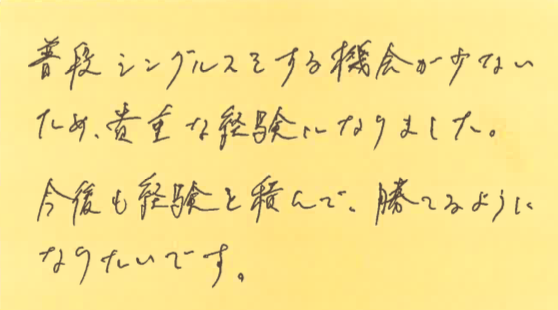 普段シングルスをする機会が少ない
ため、貴重な経験になりました。
今後も経験を積んで、勝てるように
なりたいです。